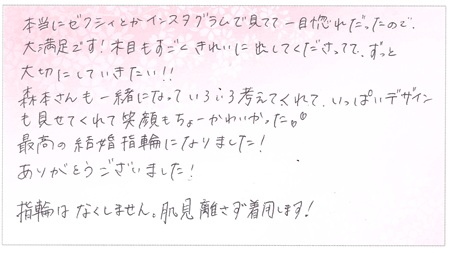 本当にゼクシィとかインスタグラムで見てて一目惚れだったので、
大満足です!木目もすごくきれいに出してくださってて、ずっと
大切にしていきたい!!
森本さんも一緒になっていろいろ考えてくれて、いっぱいデザイン
も見せてくれて笑顔もちょーかわいかった。
最高の結婚指輪になりました!
ありがとうございました!
指輪はなくしません。肌見離さず着用します!